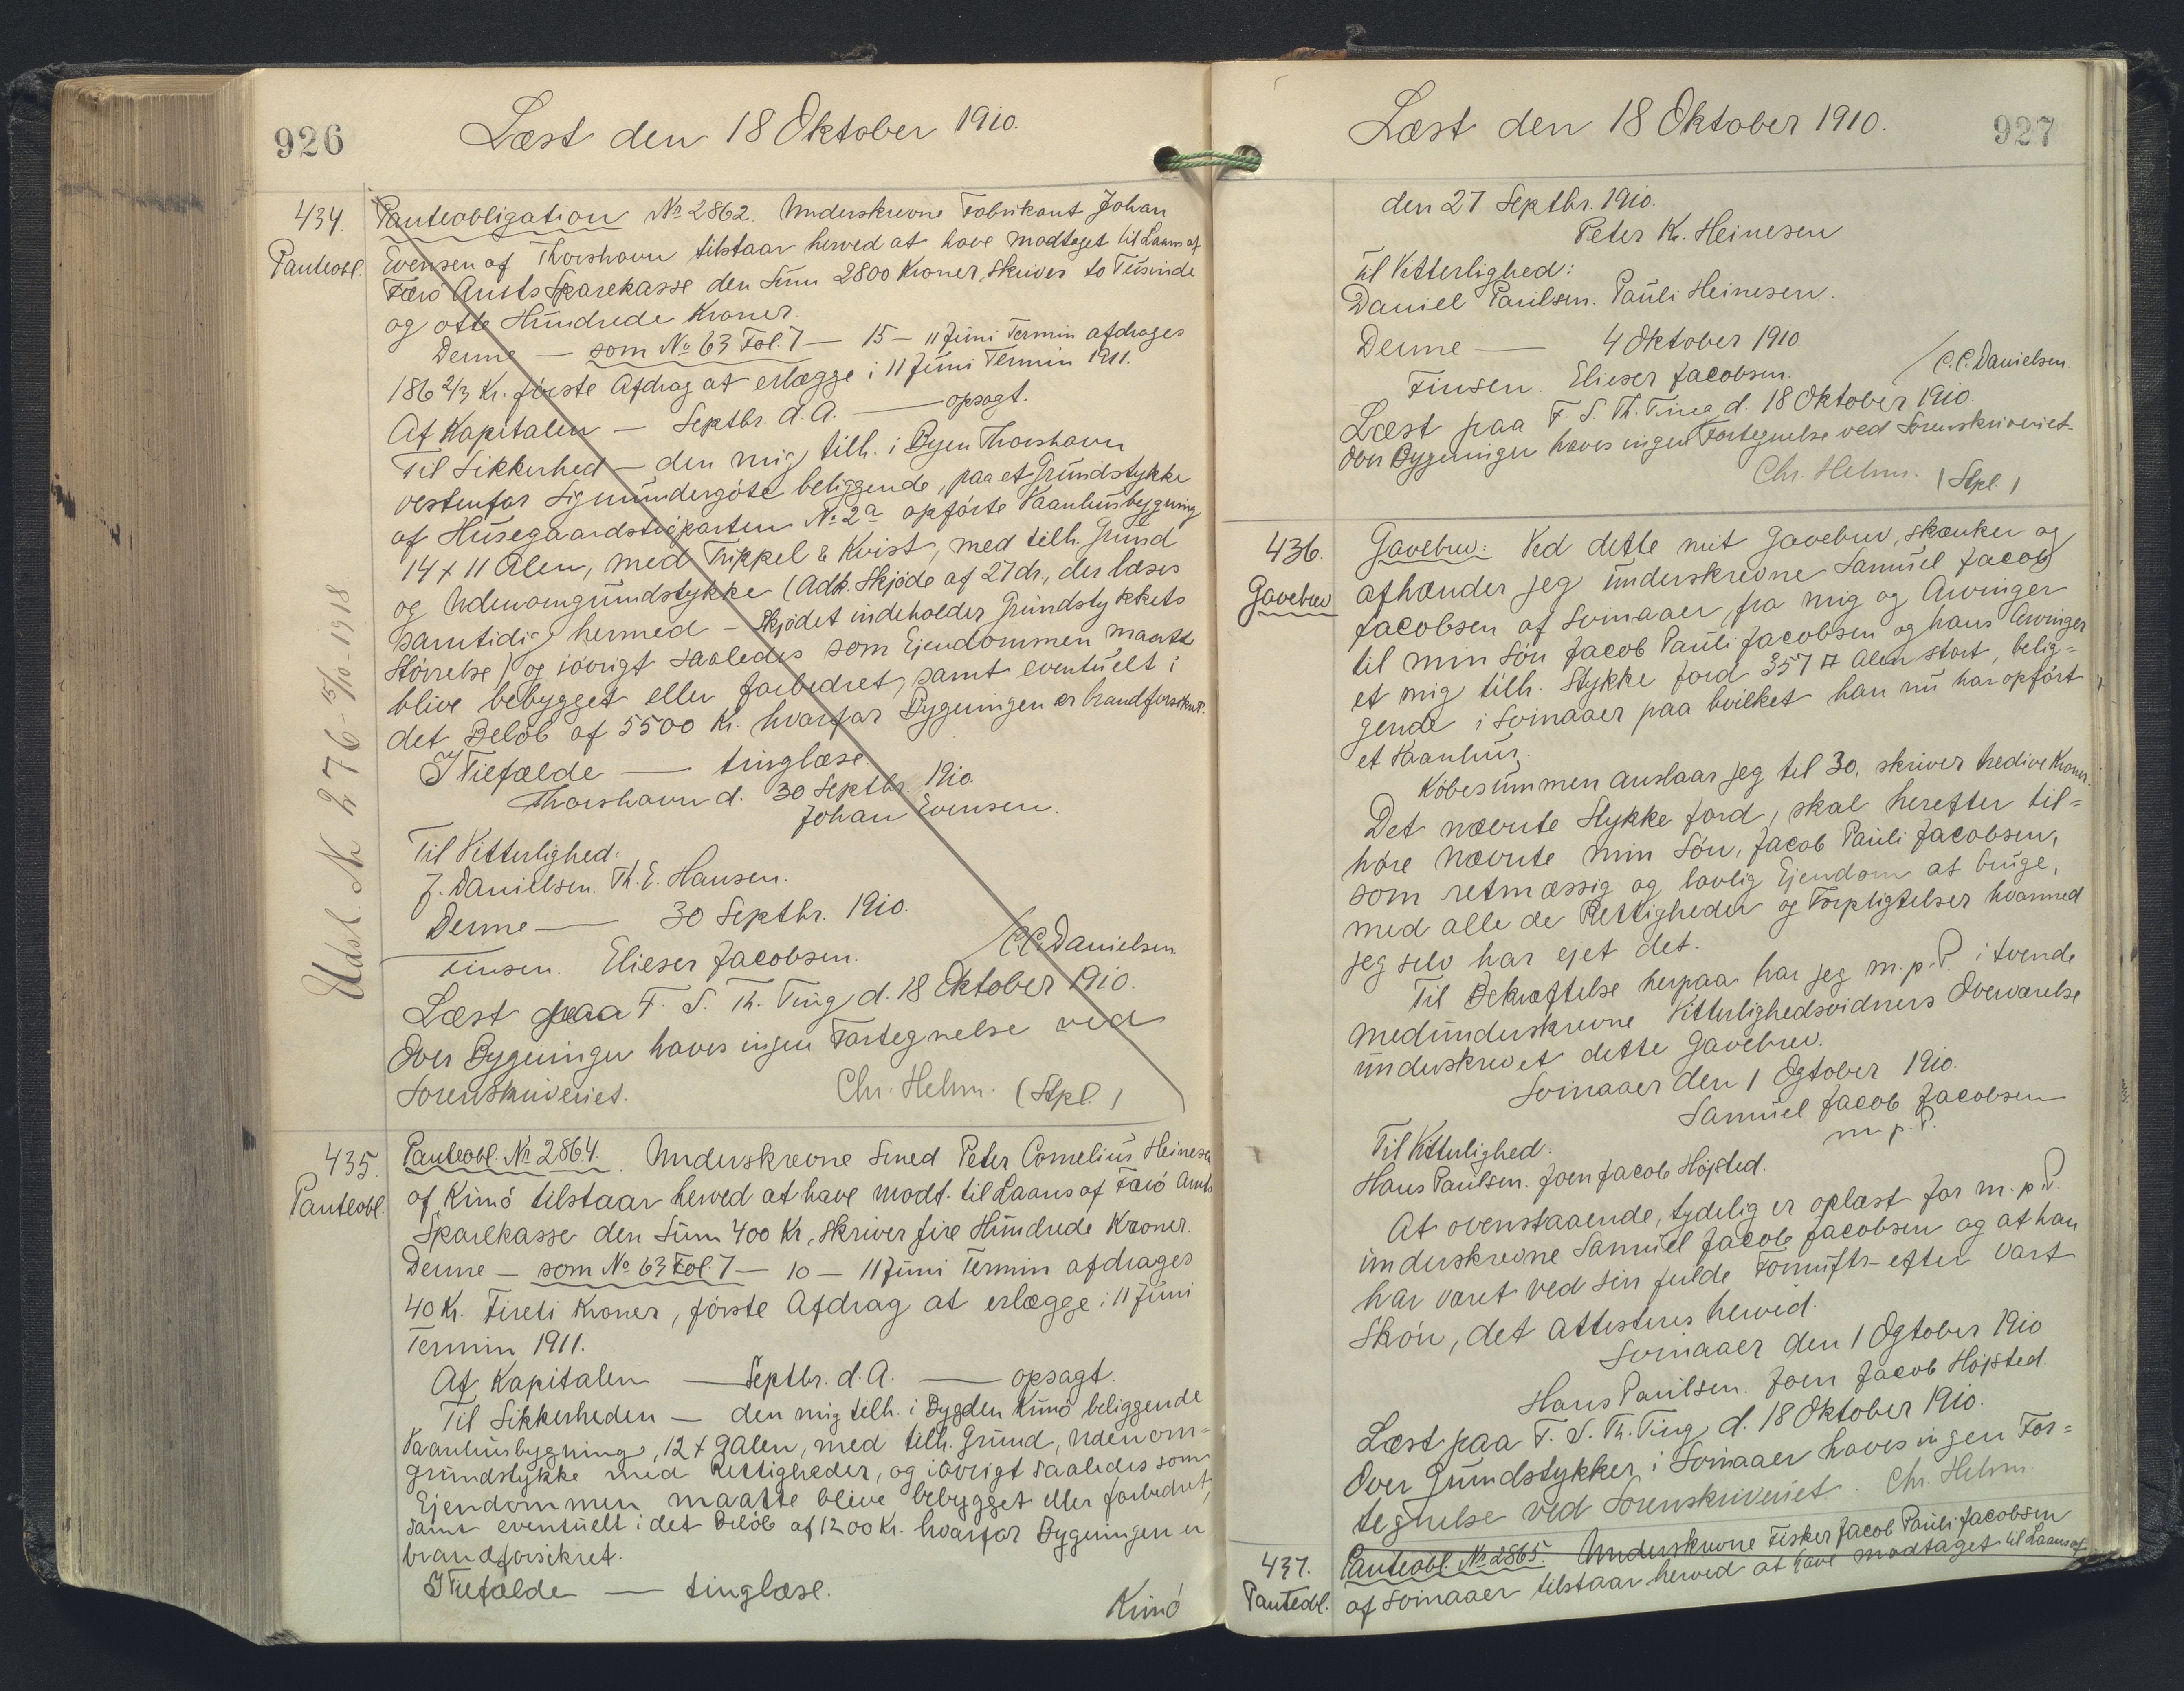 926
Læst den 18 Oktober 1910.
434.
Panteobl.
Panteobligation No 2862. Underskrevne Fabrikant Johan
Evensen af Thorshavn tilstaar herved at have modtaget til Laans af
Færö Amts Sparekasse den Sum 2800 Kroner, skriver to Tusinde
og otte Hundrede Kroner.
Denne — som No 63 Fol. 7 — 15 — 11 Juni Termin afdrages
186 2/3 Kr. første Afdrag at erlægge i 11 Juni Termin 1911.
Af Kapitalen — Septbr. d. A. — opsagt.
Til Sikkerhed — den mig tilh. i Byen Thorshavn
vestenfor Sigmundergöte beliggende, paa et Grundstykke
af Husegaardstrøparten No 2a opførte Vaanhusbygning
14 x 11 Alen, med Trippel & Kvist, med tilh. Grund
og Udenomgrundstykke (Adk. Skjøde af 27 ds., der læses
samtidig hermed – Skjødet indeholder Grundstykkets
Størrelse) og iøvrigt saaledes som Ejendommen maatte
blive bebygget eller forbedret, samt eventuelt i
det Beløb af 5500 Kr. hvorfor Bygningen er brandforsikret.
I Tilfælde — tinglæse.
Thorshavn d. 30 Septbr. 1910.
Johan Evensen.
Til Vitterlighed:
J. Danielsen. Th. E. Hansen.
Denne — 30 Septbr. 1910.
Finsen. Elieser Jacobsen. / C.C. Danielsen
Læst paa F. S. Th. Ting d. 18 Oktober 1910.
Over Bygninger haves ingen Fortegnelse ved
Sorenskriveriet. Chr. Helm. (Stpl.)
Udsl. Nr 276 - 5/10 1918
435.
Panteobl.
Panteobl. No 2864. Underskrevne Smed Peter Cornelius Heinesen
af Kunö tilstaar herved at have modt. til Laans af Færö Amts
Sparekasse den Sum 400 Kr, skriver fire Hundrede Kroner.
Denne — som No 63 Fol. 7 — 10 — 11 Juni Termin afdrages
40 Kr. Fireti Kroner, første Afdrag at erlægge i 11 Juni
Termin 1911.
Af Kapitalen — Septbr. d. A. — opsagt.
Til Sikkerheden — den mig tilh. i Bygden Kunö beliggende
Vaanhusbygning, 12 x 9 Alen, med tilh. Grund, Udenom=
grundstykke med Rettigheder, og iøvrigt saaledes som
Ejendommen maatte blive bebygget eller forbedret,
samt eventuelt i det Beløb af 1200 Kr. hvorfor Bygningen er
brandforsikret.
I Tilfælde — tinglæse.
Kunö
Læst den 18 Oktober 1910.
927
den 27 Septbr. 1910.
Peter K. Heinesen
Til Vitterlighed:
Daniel Paulsen. Pauli Heinesen.
Denne — 4 Oktober 1910.
Finsen. Elieser Jacobsen. / C.C. Danielsen.
Læst paa F. S. Th. Ting d. 18 Oktober 1910.
Over Bygninger haves ingen Fortegnelse ved Sorenskriveriet.
Chr. Helm. (Stpl.)
436.
Gavebrev
Gavebrev: Ved dette mit Gavebrev, skænker og
afhænder jeg underskrevne Samuel Jacob
Jacobsen af Svinaaer, fra mig og Arvinger
til min Søn Jacob Pauli Jacobsen og hans Arvinger
et mig tilh. Stykke Jord 357 □ Alen stort, belig=
gende i Svinaaer paa hvilket han nu har opført
et Vaanhus.
Købesummen anslaar jeg til 30, skriver tredive Kroner.
Det nævnte Stykke Jord, skal herefter til=
høre nævnte min Søn, Jacob Pauli Jacobsen,
som retmæssig og lovlig Ejendom at bruge,
med alle de Rettigheder og Forpligtelser hvormed
jeg selv har ejet det.
Til Bekræftelse herpaa har jeg m. p. P. i tvende
medunderskrevne Vitterlighedsvidners Overværelse
underskrevet dette Gavebrev.
Svinaaer den 1 Ogtober 1910.
Samuel Jacob Jacobsen
m. p. P.
Til Vitterlighed:
Hans Paulsen. Joen Jacob Højsted.
At ovenstaaende, tydelig er oplæst for m. p. P.
underskrevne Samuel Jacob Jacobsen og at han
har været ved sin fulde Fornuft – efter vort
Skøn, det attesteres herved.
Svinaaer den 1 Ogtober 1910
Hans Paulsen. Joen Jacob Højsted.
Læst paa F. S. Th. Ting d. 18 Oktober 1910.
Over Grundstykker i Svinaaer haves ingen For=
tegnelse ved Sorenskriveriet. Chr. Helm.
437.
Panteobl.
Panteobl. No 2865. Underskrevne Fisker Jacob Pauli Jacobsen
af Svinaaer tilstaar herved at have modtaget til Laans af